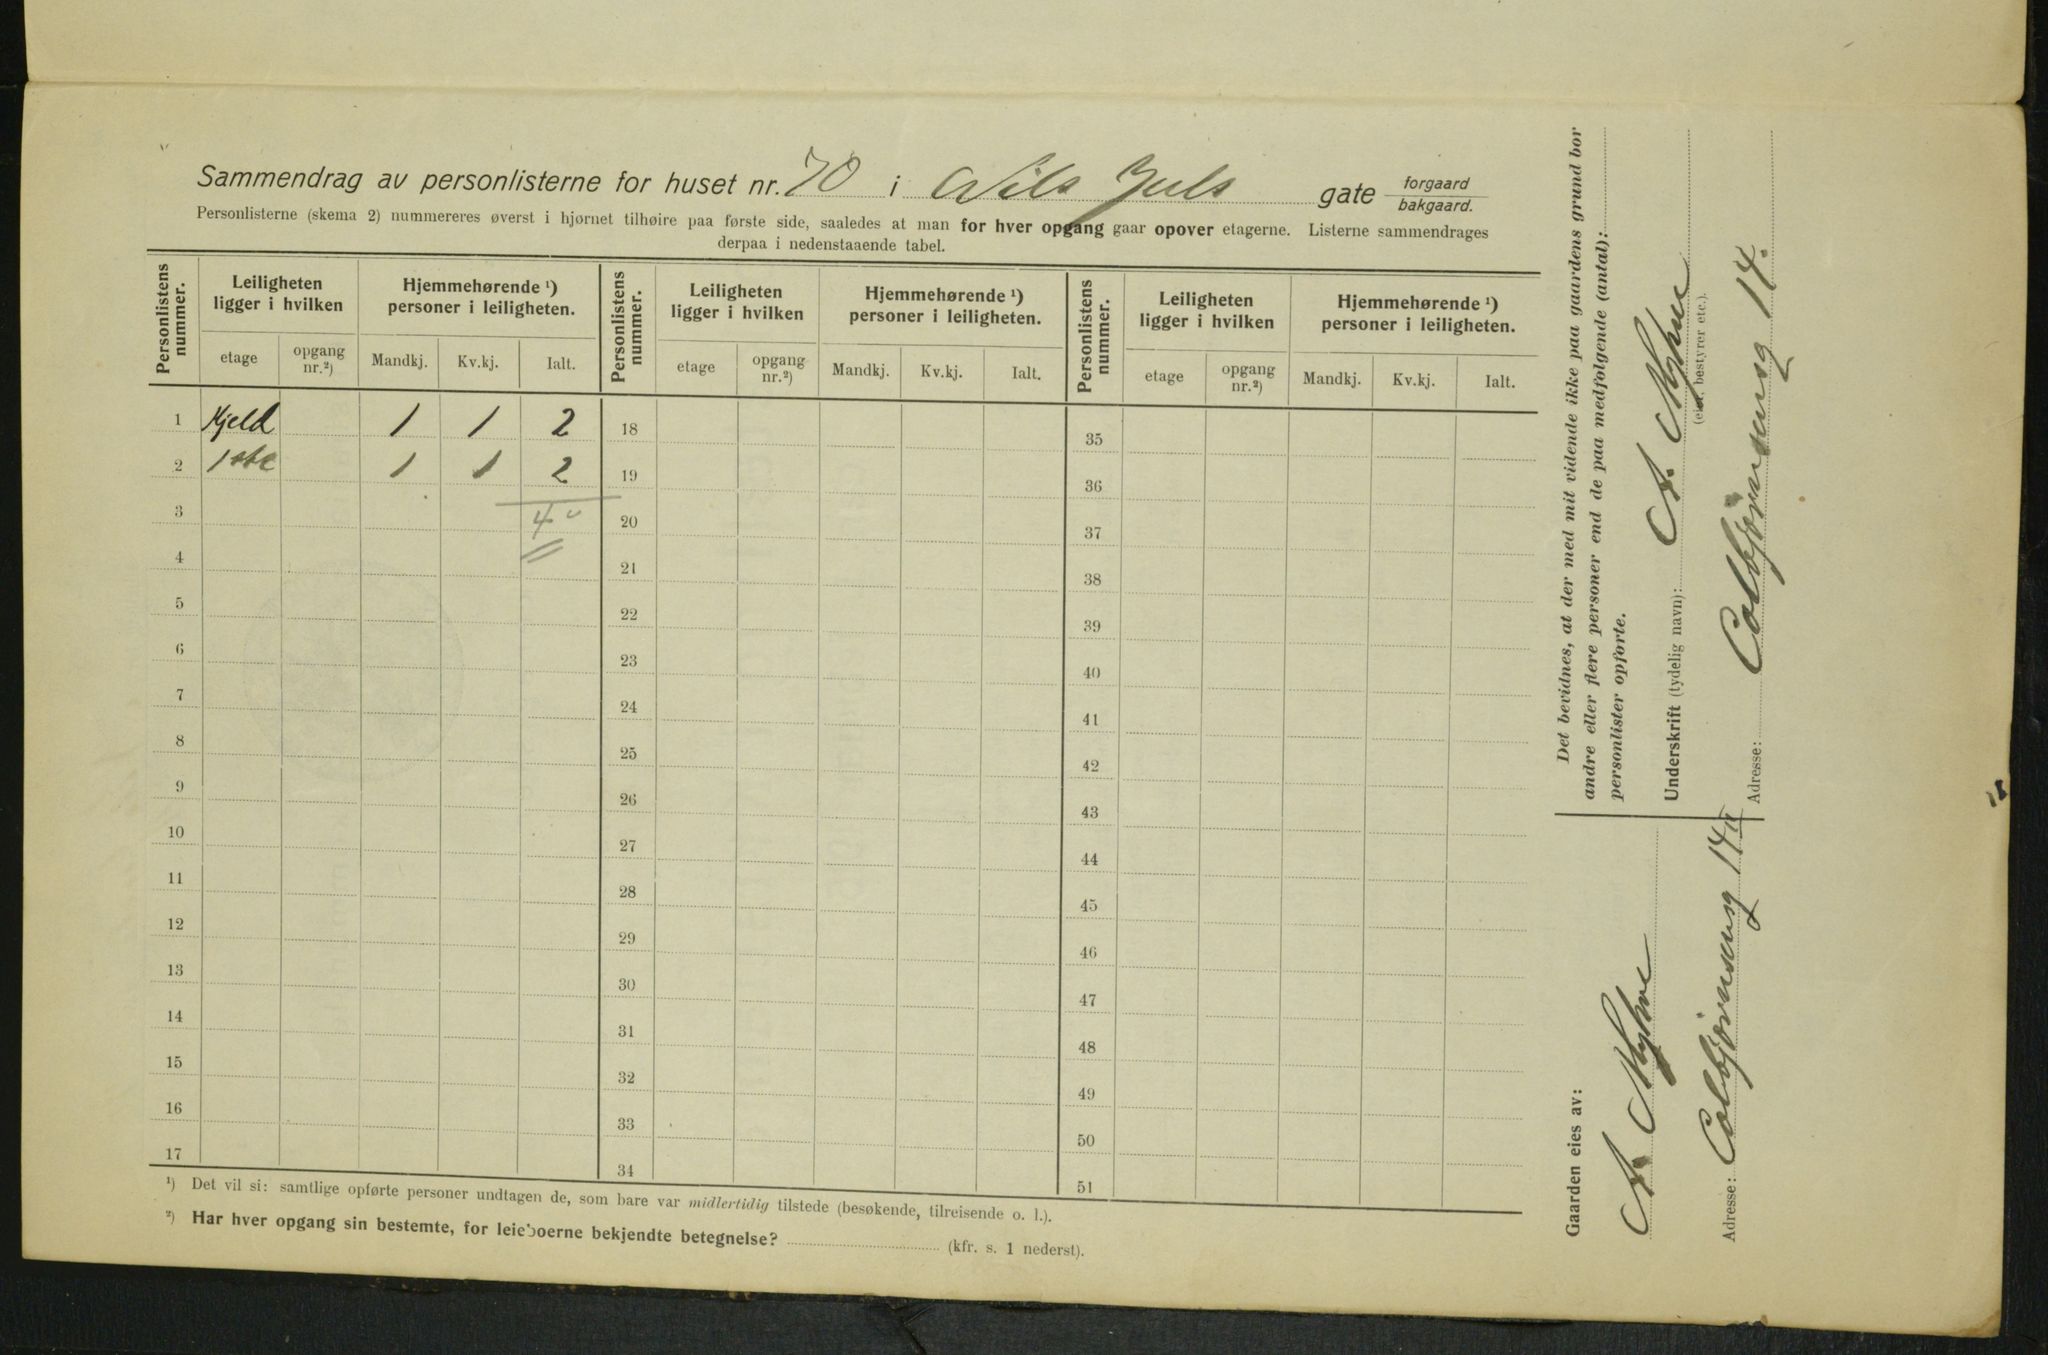 Sammendrag av personlisterne for huset nr. 70 i Nils Juls gate forgaard
bakgaard.
Personlisterne (skema 2) nummereres øverst i hjørnet tilhøire paa første side, saaledes at man for hver opgang gaar opover etagerne. Listerne sammendrages
derpaa i nedenstaaende tabel.
Personlistens nummer. Leiligheten ligger i hvilken Hjemmehørende ¹) personer i leiligheten. Personlistens nummer. Leiligheten ligger i hvilken Hjemmehørende ¹) personer i leiligheten. Personlistens nummer. Leiligheten ligger i hvilken Hjemmehørende ¹) personer i leiligheten.
etage opgang nr.²) Mandkj. Kv.kj. Ialt. etage opgang nr.²) Mandkj. Kv.kj. Ialt. etage opgang nr.²) Mandkj. Kv.kj. Ialt.
1 Kjeld 1 1 2 18 35
2 1ste 1 1 2 19 36
3 4 20 37
4 21 38
5 22 39
6 23 40
7 24 41
8 25 42
9 26 43
10 27 44
11 28 45
12 29 46
13 30 47
14 31 48
15 32 49
16 33 50
17 34 51
¹) Det vil si: samtlige opførte personer undtagen de, som bare var midlertidig tilstede (besøkende, tilreisende o. l.).
²) Har hver opgang sin bestemte, for leieboerne bekjendte betegnelse? (kfr. s. 1 nederst).
Det bevidnes, at der med mit vidende ikke paa gaardens grund bor
andre eller flere personer end de paa medfølgende (antal):
personlister opførte.
Underskrift (tydelig navn): A. Myhre
(eier, bestyrer etc.).
Adresse: Colbjørnsensg 14.
Gaarden eies av:
A. Myhre
Adresse: Colbjørnsensg 14